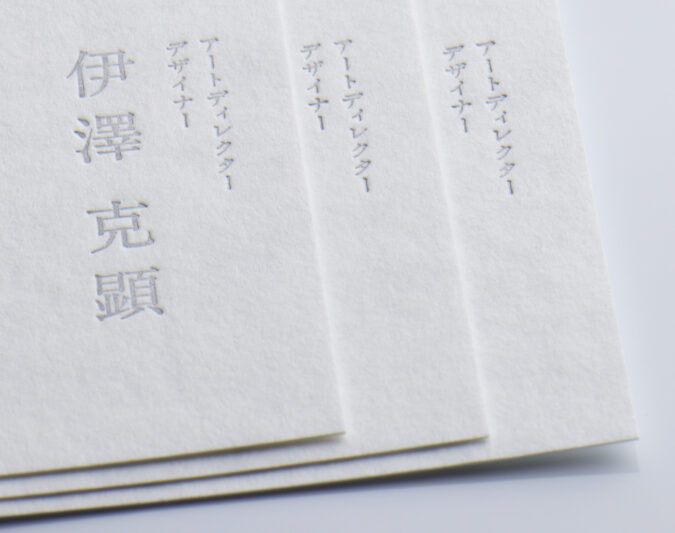 アートディレクター
デザイナー
伊澤 克顕
アートディレクター
デザイナー
アートディレクター
デザイナー